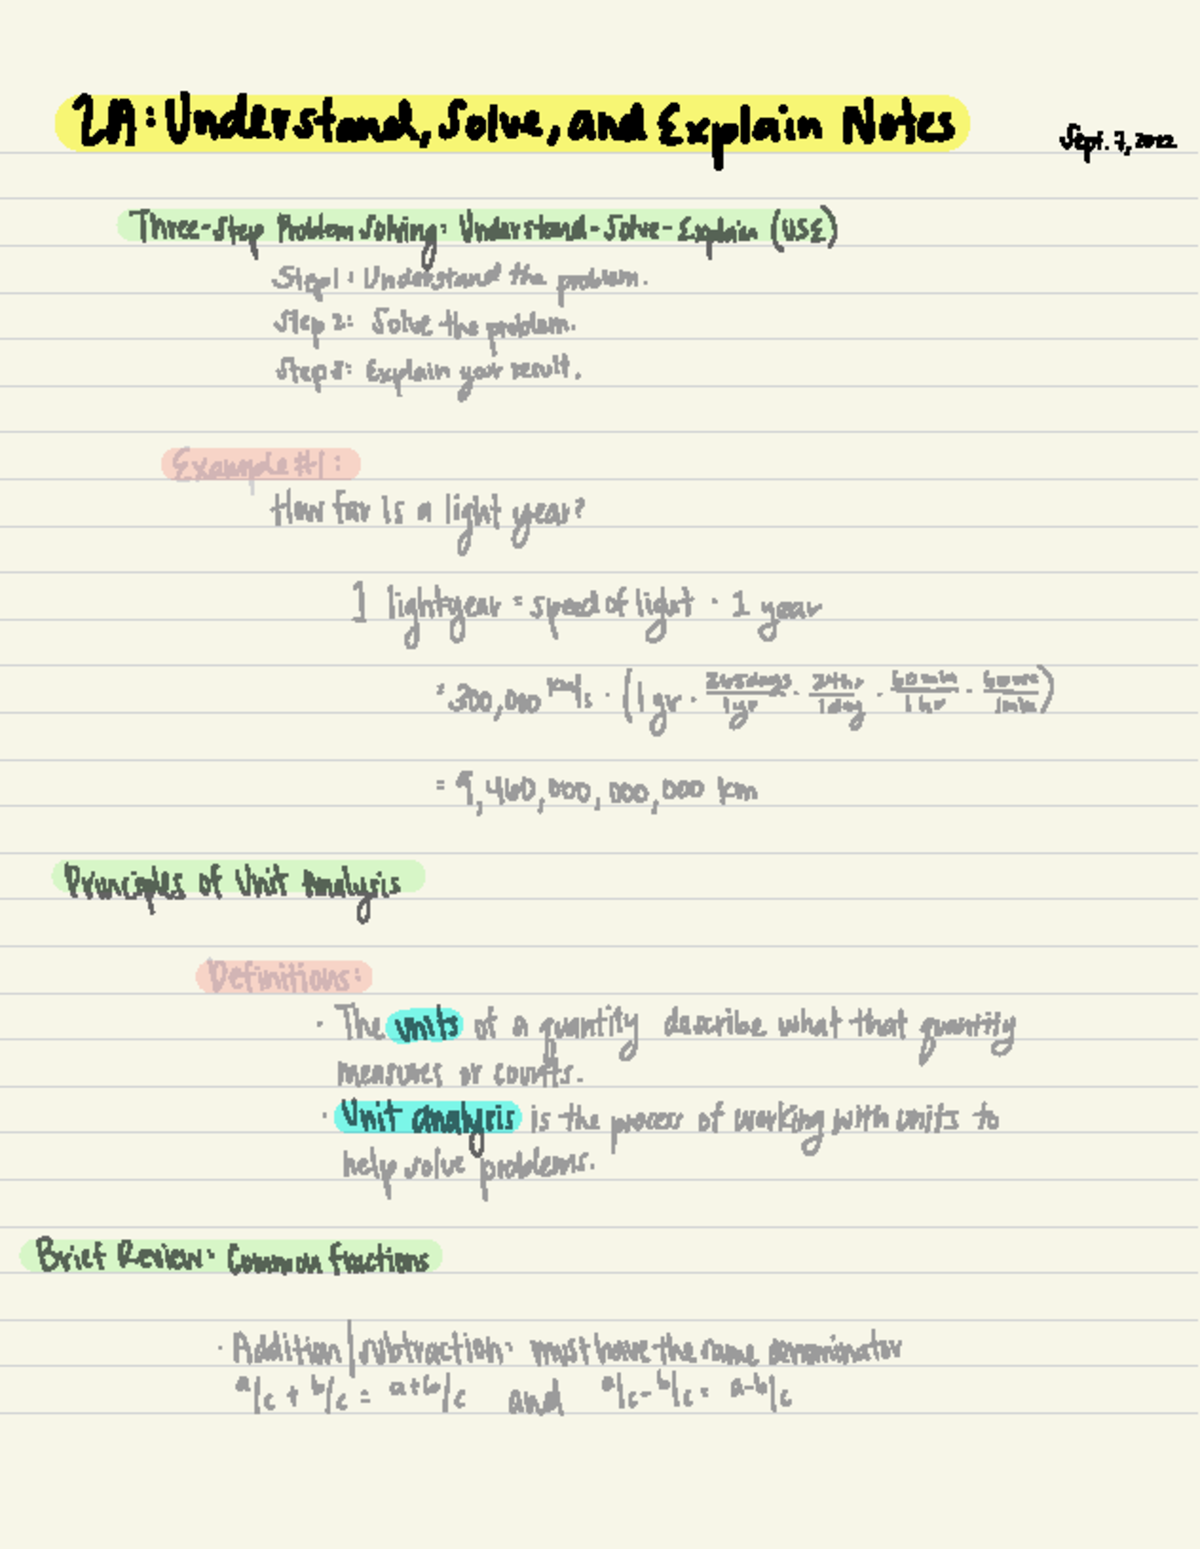 2A: Understand, Solve, and Explain Notes
Sept. 7, 2022
Three-Step Problem Solving: Understand-Solve-Explain (USE)
Step 1: Understand the problem.
Step 2: Solve the problem.
Step 3: Explain your result.
Example #1:
How far is a light year?
1 lightyear = speed of light · 1 year
= 300,000 km/s · (1 yr · 365days/1yr · 24hr/1day · 60min/1hr · 60sec/1min)
= 9,460,000,000,000 km
Principles of Unit Analysis
Definitions:
· The units of a quantity describe what that quantity
measures or counts.
· Unit analysis is the process of working with units to
help solve problems.
Brief Review: Common Fractions
· Addition/subtraction: must have the same denominator
a/c + b/c = a+b/c and a/c - b/c = a-b/c